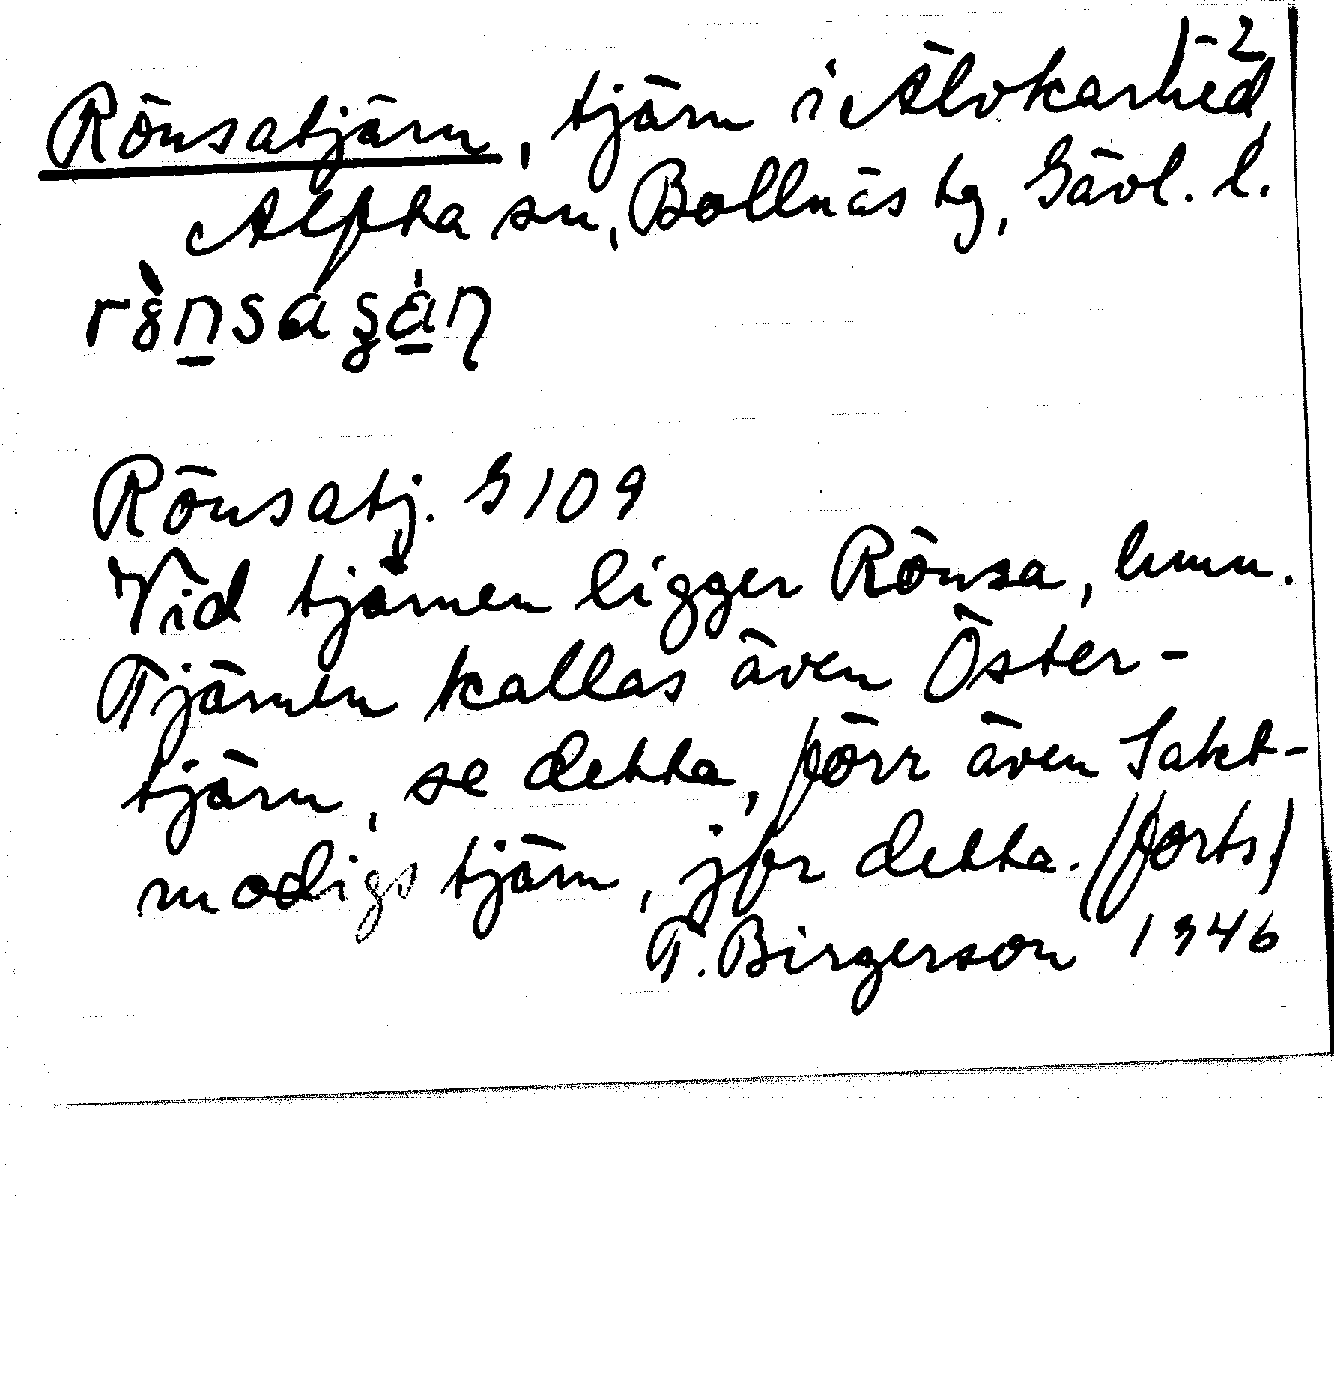 1-2
Rönsatjärn, tjärn i Älvkarhed,
Alfta sn, Bollnäs tg, Gävl. l.
Rönsatj. G 109
Vid tjärnen ligger Rönsa, hmn.
Tjärnen kallas även Öster-
tjärn, se detta, förr även Sakt-
modigstjärn, jfr detta. (forts.)
T. Birgerson 1946